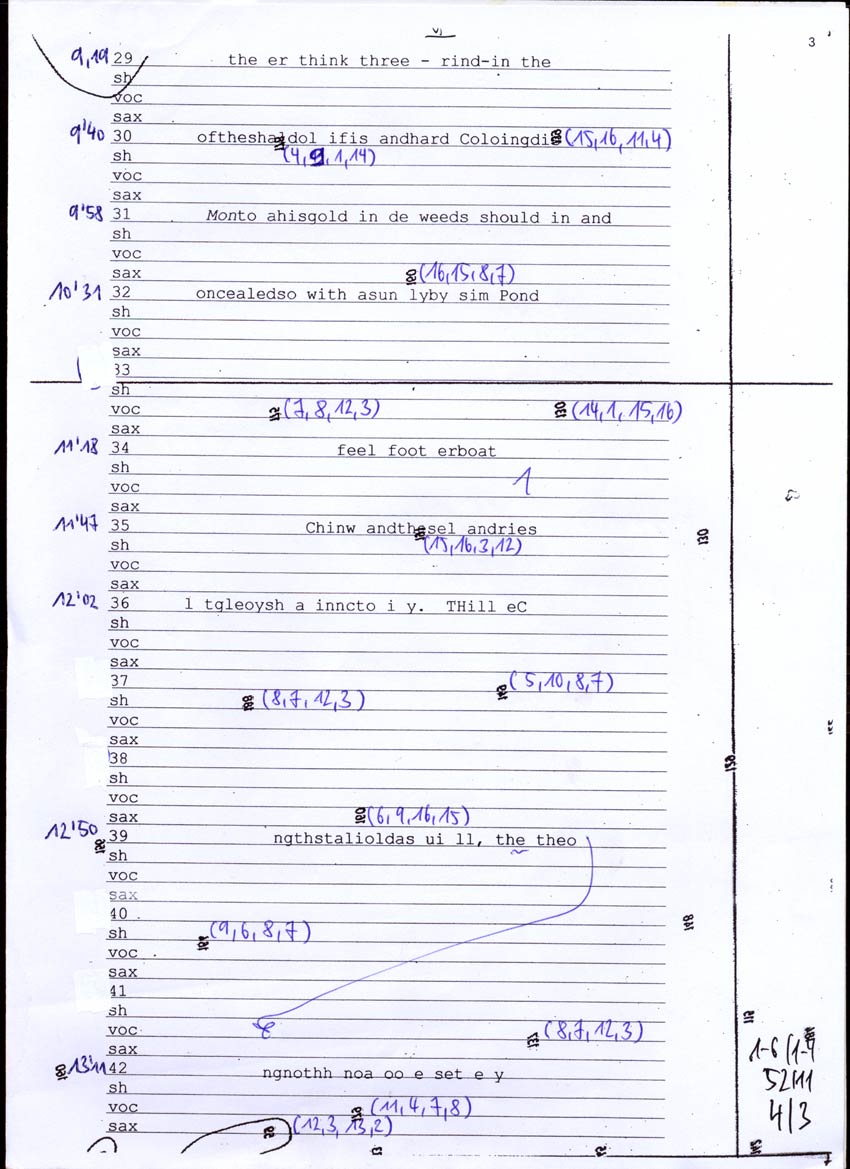 3
9,19 29 the er think three - rind-in the
sh
voc
sax
9'40 30 oftheshaldol ifis andhard Coloingdi (15,16,11,4)
sh (4,9,1,14)
voc
sax
9'58 31 Monto ahisgold in de weeds should in and
sh
voc
sax (16,15,8,7)
10'31 32 oncealedso with asun lyby sim Pond
sh
voc
sax
33
sh
voc (7,8,12,3) (14,1,15,16)
sax
11'18 34 feel foot erboat
sh
voc 1
sax
11'47 35 Chinw andthesel andries
sh (15,16,3,12) 130
voc
sax
12'02 36 l tgleoysh a inncto i y. THill eC
sh
voc
sax
37 (5,10,8,7)
sh (8,7,12,3)
voc
sax
38
sh
voc
sax (6,9,16,15)
12'50 39 ngthstalioldas ui ll, the theo
sh
voc
sax
40
sh (9,6,8,7)
voc
sax
41
sh
voc (8,7,12,3)
sax
13'11 42 ngnothh noa oo e set e y
sh
voc (11,4,7,8)
sax (12,3,13,2)
1-6/1-4
4/3